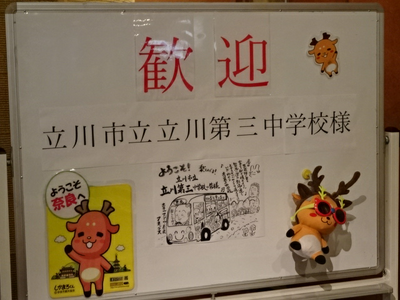 歓迎
立川市立立川第三中学校様
ようこそ
奈良へ
ようこそ!
立川市立
立川第三中学校の皆様
しかまろくん